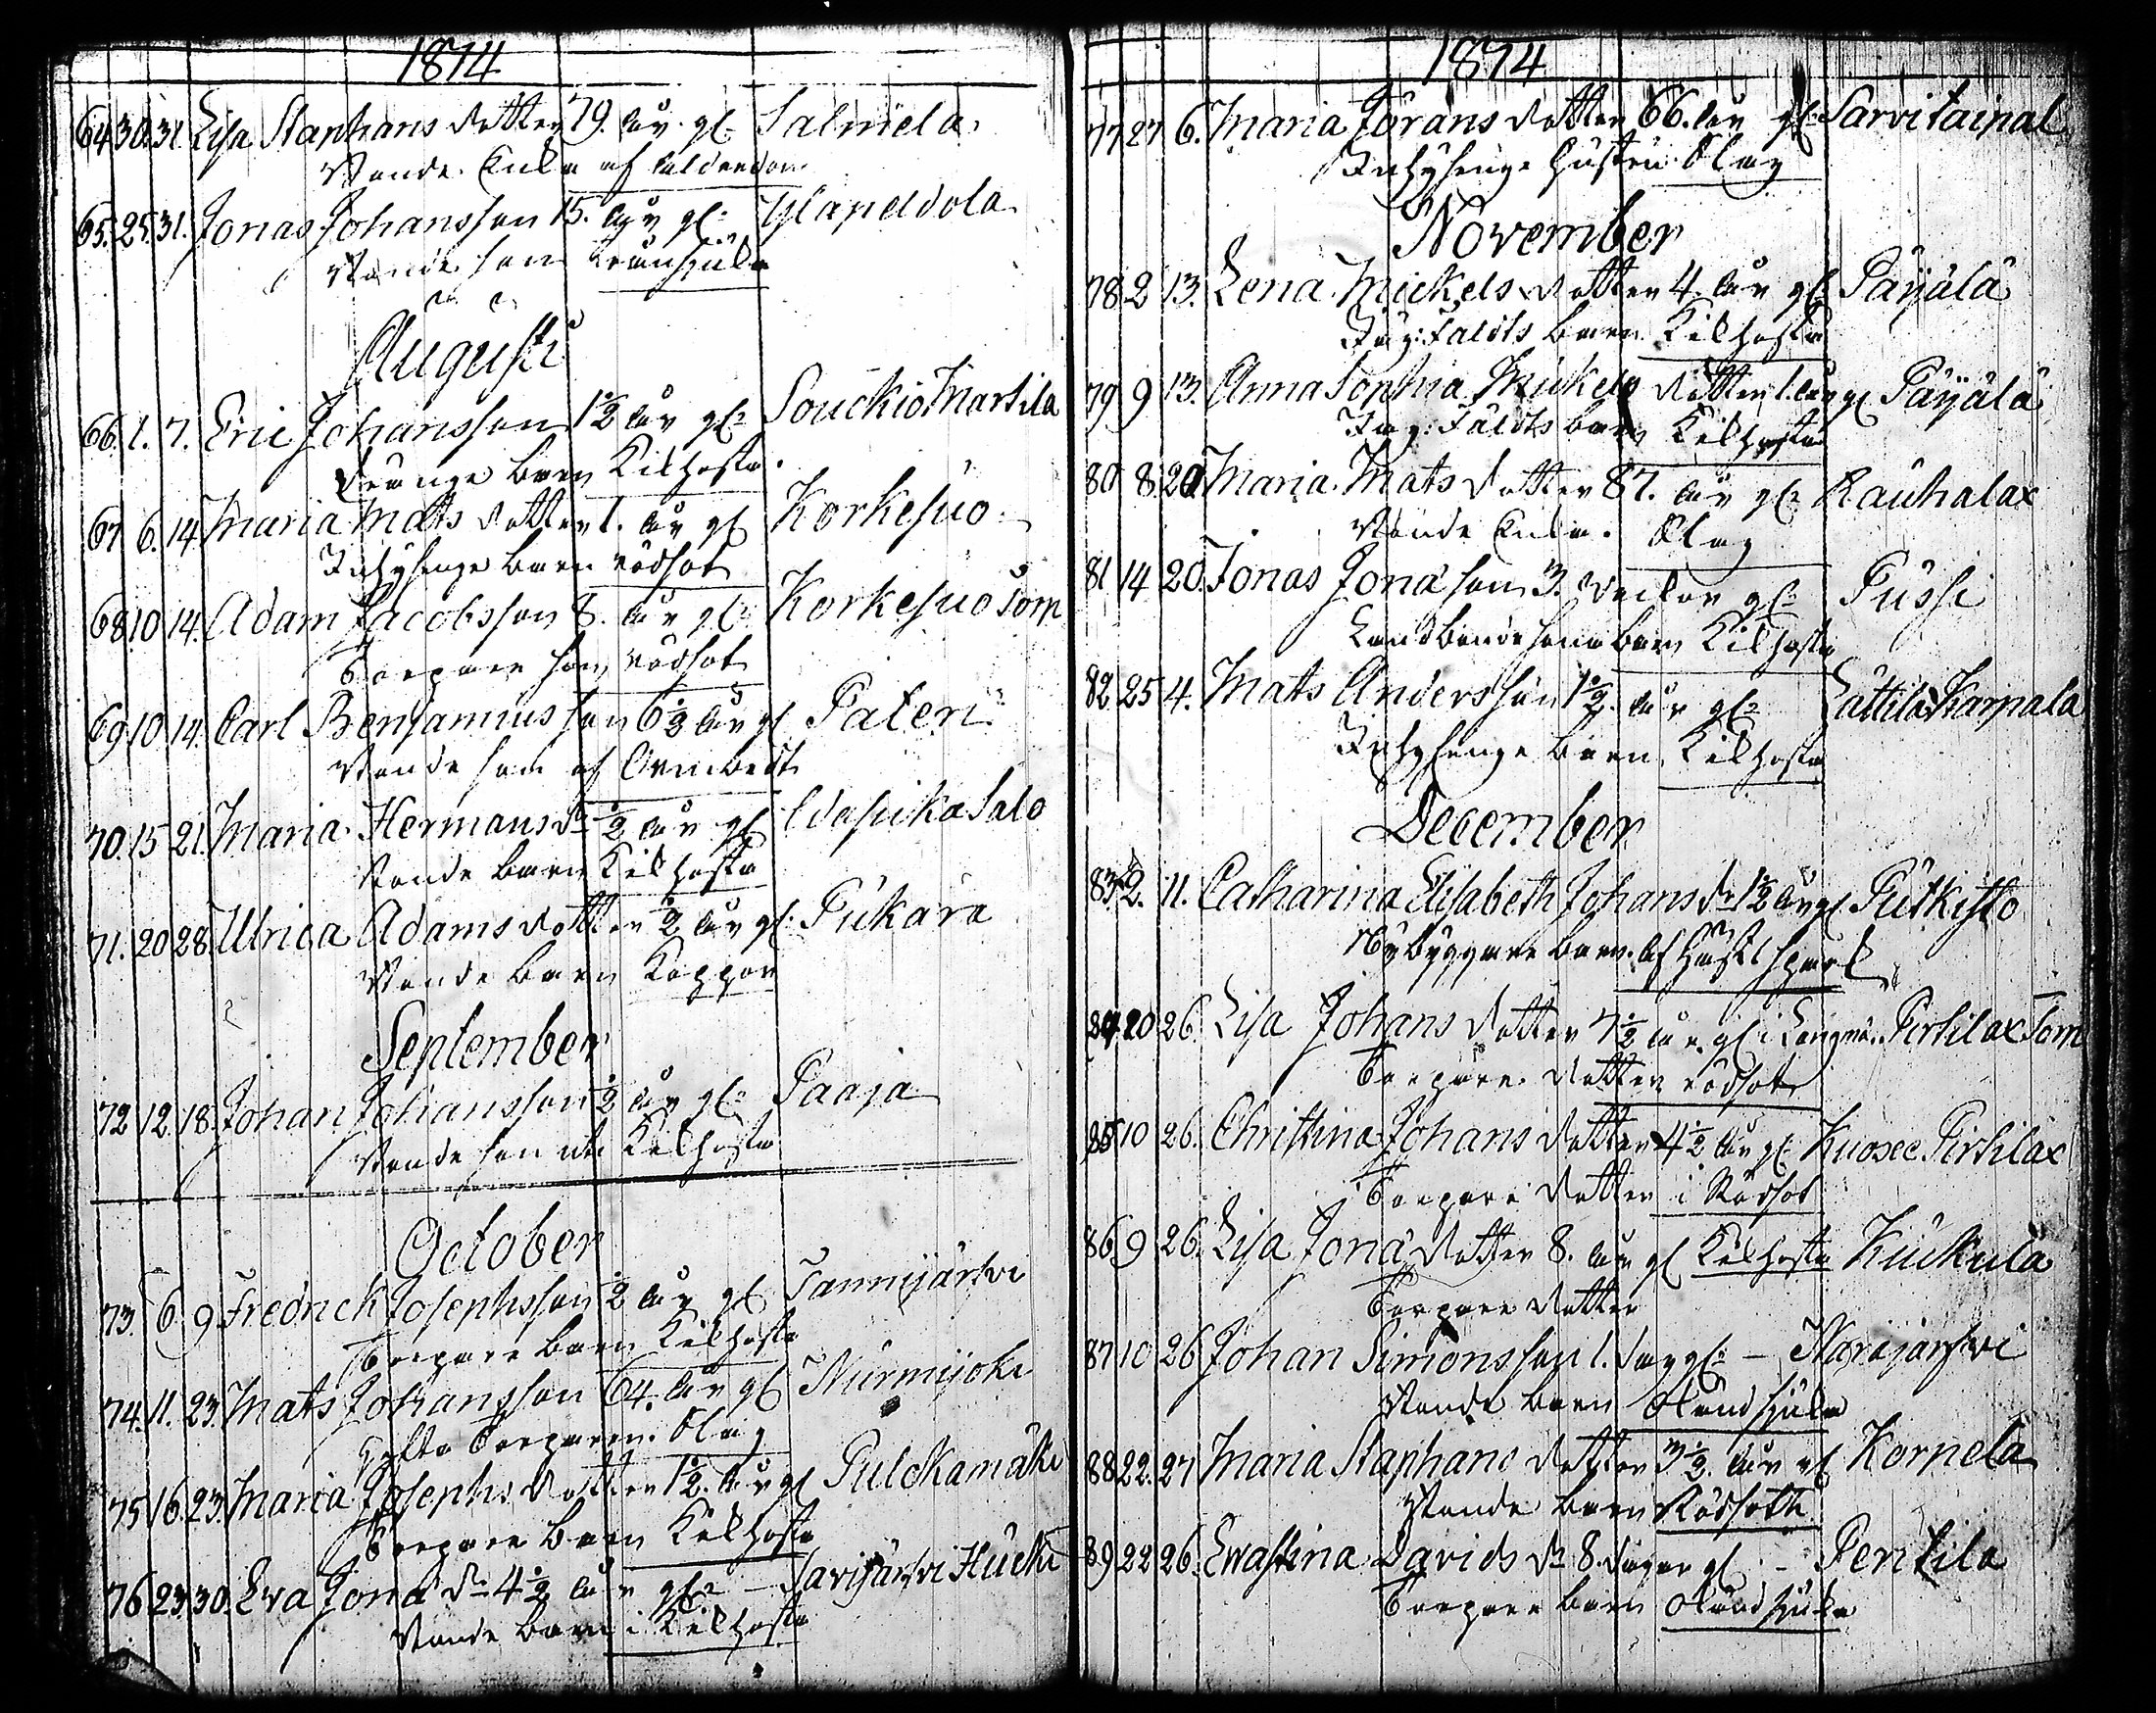 1814
64 30. 31. Lisa Staphans dotter 79. år gl. Salmela
Bonde Enka af ålderdom
65. 25. 31. Jonas Johansson 15. år gl.
Bonde son
Augusti
66. 1. 7. Eric Johansson 1½ år gl. Souckio Martila
Dränge barn Kikhosta.
67 6. 14. Maria Mats dotter 1. år gl Korkesuo
Inhyses barn rödsot
68 10 14. Adam Jacobsson 8. år gl. Korkesuo Torn
Torpare son rödsot
69 10 14. Carl Benjamins son 6½ år gl Pateri
Bonde son af
70. 15 21. Maria Hermans dr ½ år gl Salo
Bonde barn Kikhosta
71. 20 28. Ulrica Adams dotter ½ år gl. Pukara
Bonde barn Koppor
September
72 12. 18. Johan Johansson ½ år gl. Paaja
Bonde son Kikhosta
October
73. 6 9 Fredrick Josephsson ½ år gl Tannijärfvi
Torpare barn Kikhosta
74. 11. 23. Mats Johansson 64. år gl Nurmijoki
Torparen. Slag
75 16. 23. Maria Josephs dotter 1½. år gl Pulckamäki
Torpare barn Kikhosta
76 23. 30. Eva Jona dr 4½ år gl. Savijärfvi Hucki
Bonde barn i Kikhosta
1814
77 27 6. Maria Jörans dotter 66. år gl. Sarvitaipal
Inhyses hustru Slag
November
78 2 13. Lena Mickels dotter 4. år gl. Päijälä
barn Kikhosta
79 9 13. Anna Sophia Mickels dotter 1. år gl Päijälä
barn Kikhosta
80 8 20 Maria Mats dotter 87. år gl. Rauhalax
Bonde Enka. Slag
81 14 20. Jonas Jona son 3. veckor gl. Pussi
Landbonde sons barn Kikhosta
82 25 4. Mats Andersson 1½. år gl. Lättilä Karpala
Inhyses barn. Kikhosta
December
83 2. 11. Catharina Elisabeth Johans dr 1½ år gl Putkisto
Nybyggare barn. af
84 20 26. Lisa Johans dotter 7½ år gl. Pertilax Torn
Torpare dotter rödsot
85 10 26. Christina Johans dotter 4½ år gl. Kuosec Pertilax
Torpare dotter i Rödsot
86 9 26. Lisa Jona dotter 8. år gl Kikhosta Kuckula
Torpare dotter
87 10 26 Johan Simonsson 1. dag gl. – Narajärfvi
Bonde barn
88 22. 27 Maria Staphans dotter 3½. år gl Korpela
Bonde barn Rödsoth
89 22 26. Evastina Davids dr 8. dagar gl – Pentila
Torpare barn